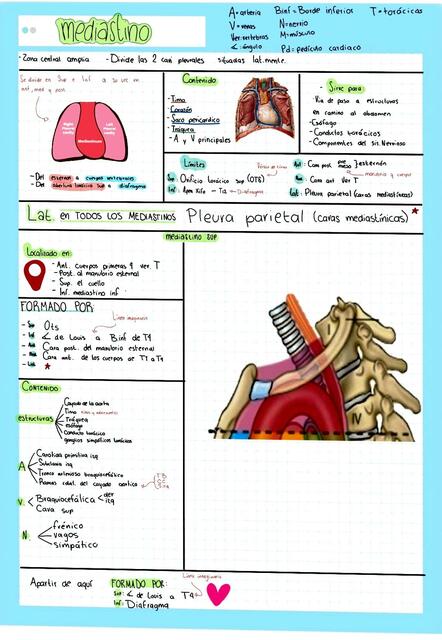 mediastino
A=arteria Binf=Borde inferios T=torácicas
V=venas N=Nervio
Ver:vertebras M=Músculo
∠:ángulo Pd=pedículo cardiaco
-Zona central amplia -Divide las 2 cav. pleurales situadas lat.mente.
Se divide en Sup e Inf a su vez en
ant, med y post.
Right Pleural cavity
Left Pleural cavity
Mediastinum
- Del esternon a cuerpos vertebrales
- Del abertura torácica sup a diafragma
Contenido
-Timo
-Corazón
-Saco pericardico
-Tráquea
- A y V principales
Sirve para
Vía de paso a estructuras
en camino al abdomen
-Esófago
-Conductos torácicos
-Componentes del sis. Nervioso
Límites
Sup: Orificio torácico sup (OTS)
Inf: Apex Xifo - T9
Diafragma
Ant: Cara post. }esternón
manubrio y cuerpo
Post: Cara ant Ver T
Lat: Pleura parietal (caras mediastínicas)
Lat. en TODOS LOS MEDIASTINOS Pleura parietal (caras mediastínicas)
mediastino sup
Localizado en:
-Ant. cuerpos primeras 4 ver. T
-Post. al manubrio esternal
-Sup. el cuello
-Inf. mediastino inf
FORMADO POR:
Línea imaginaria
-Sup Ots
-Inf ∠ de Louis a Binf de T4
-Ant Cara post. del manubrio esternal
-Post Cara ant. de los cuerpos de T1 a T4
-Lat
Contenido
estructuras
Cayado de la aorta
Timo
Tráquea
esófago
Conducto torácico
ganglios simpáticos torácicos
A
Carotida primitiva izq
Subclavia izq
Tronco arterioso braquiocefálico
Ramas colat. del cayado aortico
V.
Braquiocefálica
der
izq
Cava sup
N.
frénico
vagos
simpático
IV
Apartir de aquí
FORMADO POR:
Línea imaginaria
Sup: ∠ de Louis a T4
Inf: Diafragma